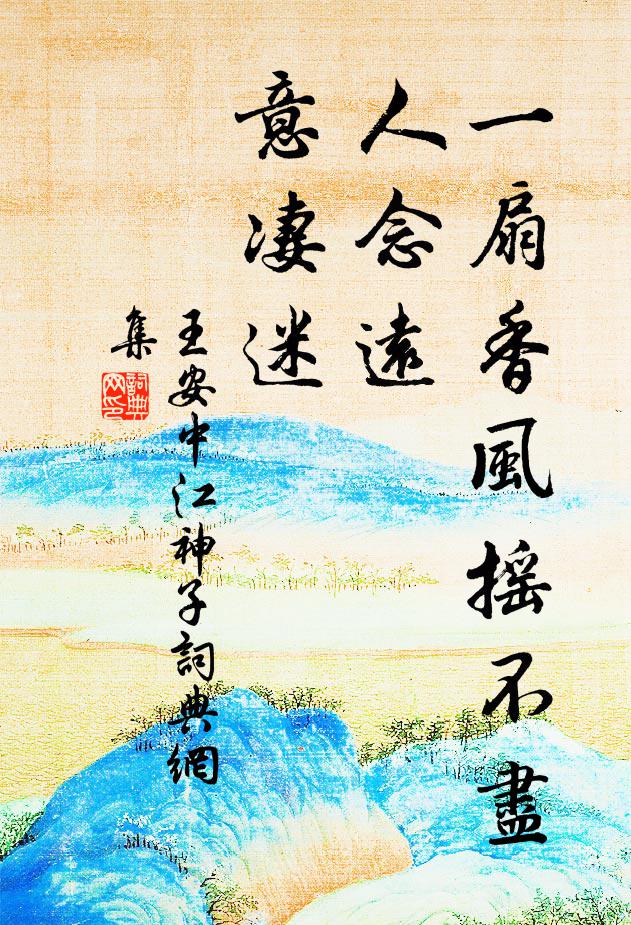 一扇香風摇不盡
人念遠
意淒迷
王安中江神子詞典網
集
詞典
网印